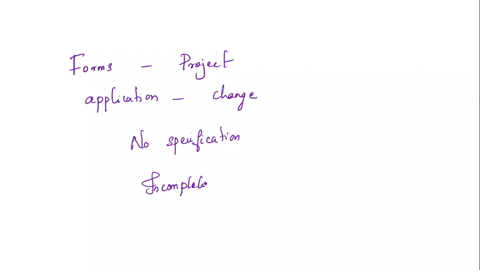 Forms - Project
application - change
No specification
Incomplete